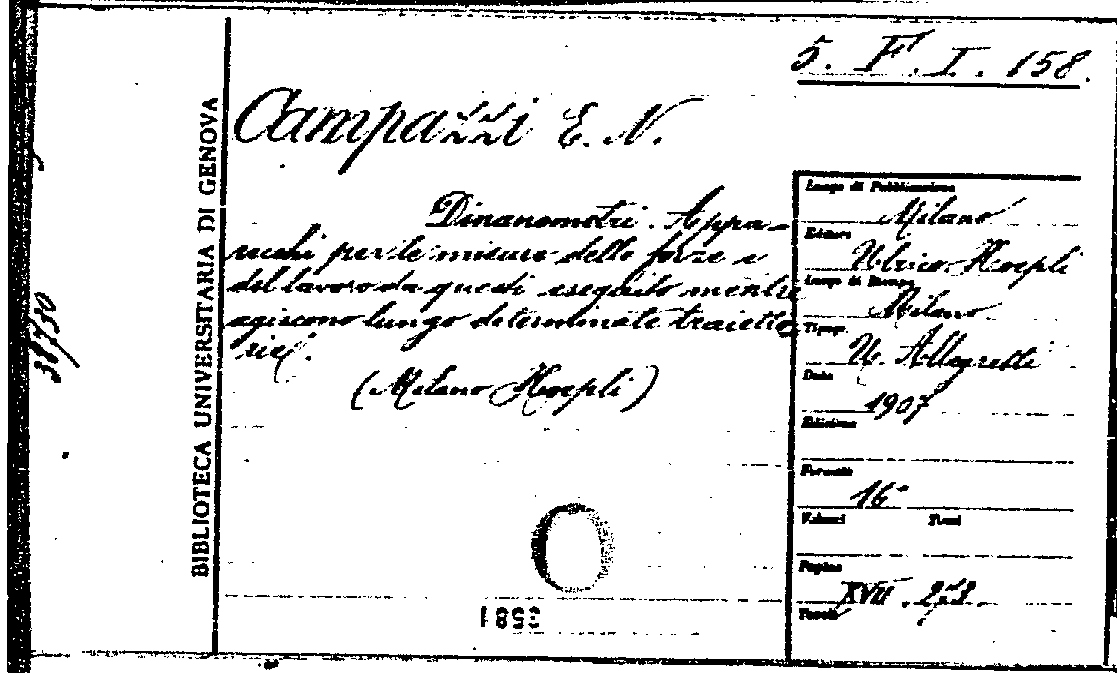 5. F. I. 158.
Campazzi E. N.
Dinamometri. Appa-
recchi per le misure delle forze e
del lavoro da questi eseguito mentre
agiscono lungo determinate traietto
rie.
(Milano Hoepli)
BIBLIOTECA UNIVERSITARIA DI GENOVA
38730
Luogo di Pubblicazione
Milano
Editore
Ulrico Hoepli
Luogo di Stampa
Milano
Tipogr.
U. Allegretti
Data
1907
Edizione
Formato
16°
Volumi Tomi
Pagine
XVII. 273.
Tavole